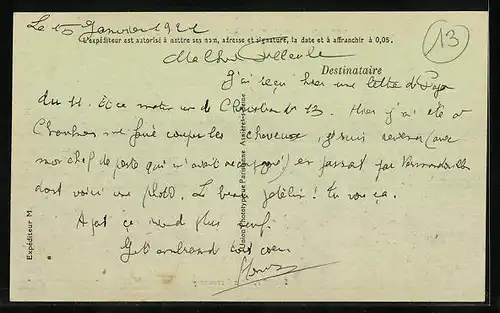 Le 15 Janvier 1921
L'expéditeur est autorisé à mettre ses nom, adresse et signature, la date et à affranchir à 0,05.
13
Ma Chère
Destinataire
J'ai reçu hier une lettre de Papa
du 11. Et ce matin une de 13. Hier j'ai été à
me faire couper les cheveux, je suis revenu (avec
mon chef de poste qui m'avait accompagné) en passant par
dont voici une photo. Le beau patelin! tu vois ça.
A part ça rien de plus neuf.
Je t'embrasse de tout cœur
Expéditeur M
Union Phototypique Parisienne Asnières-Seine